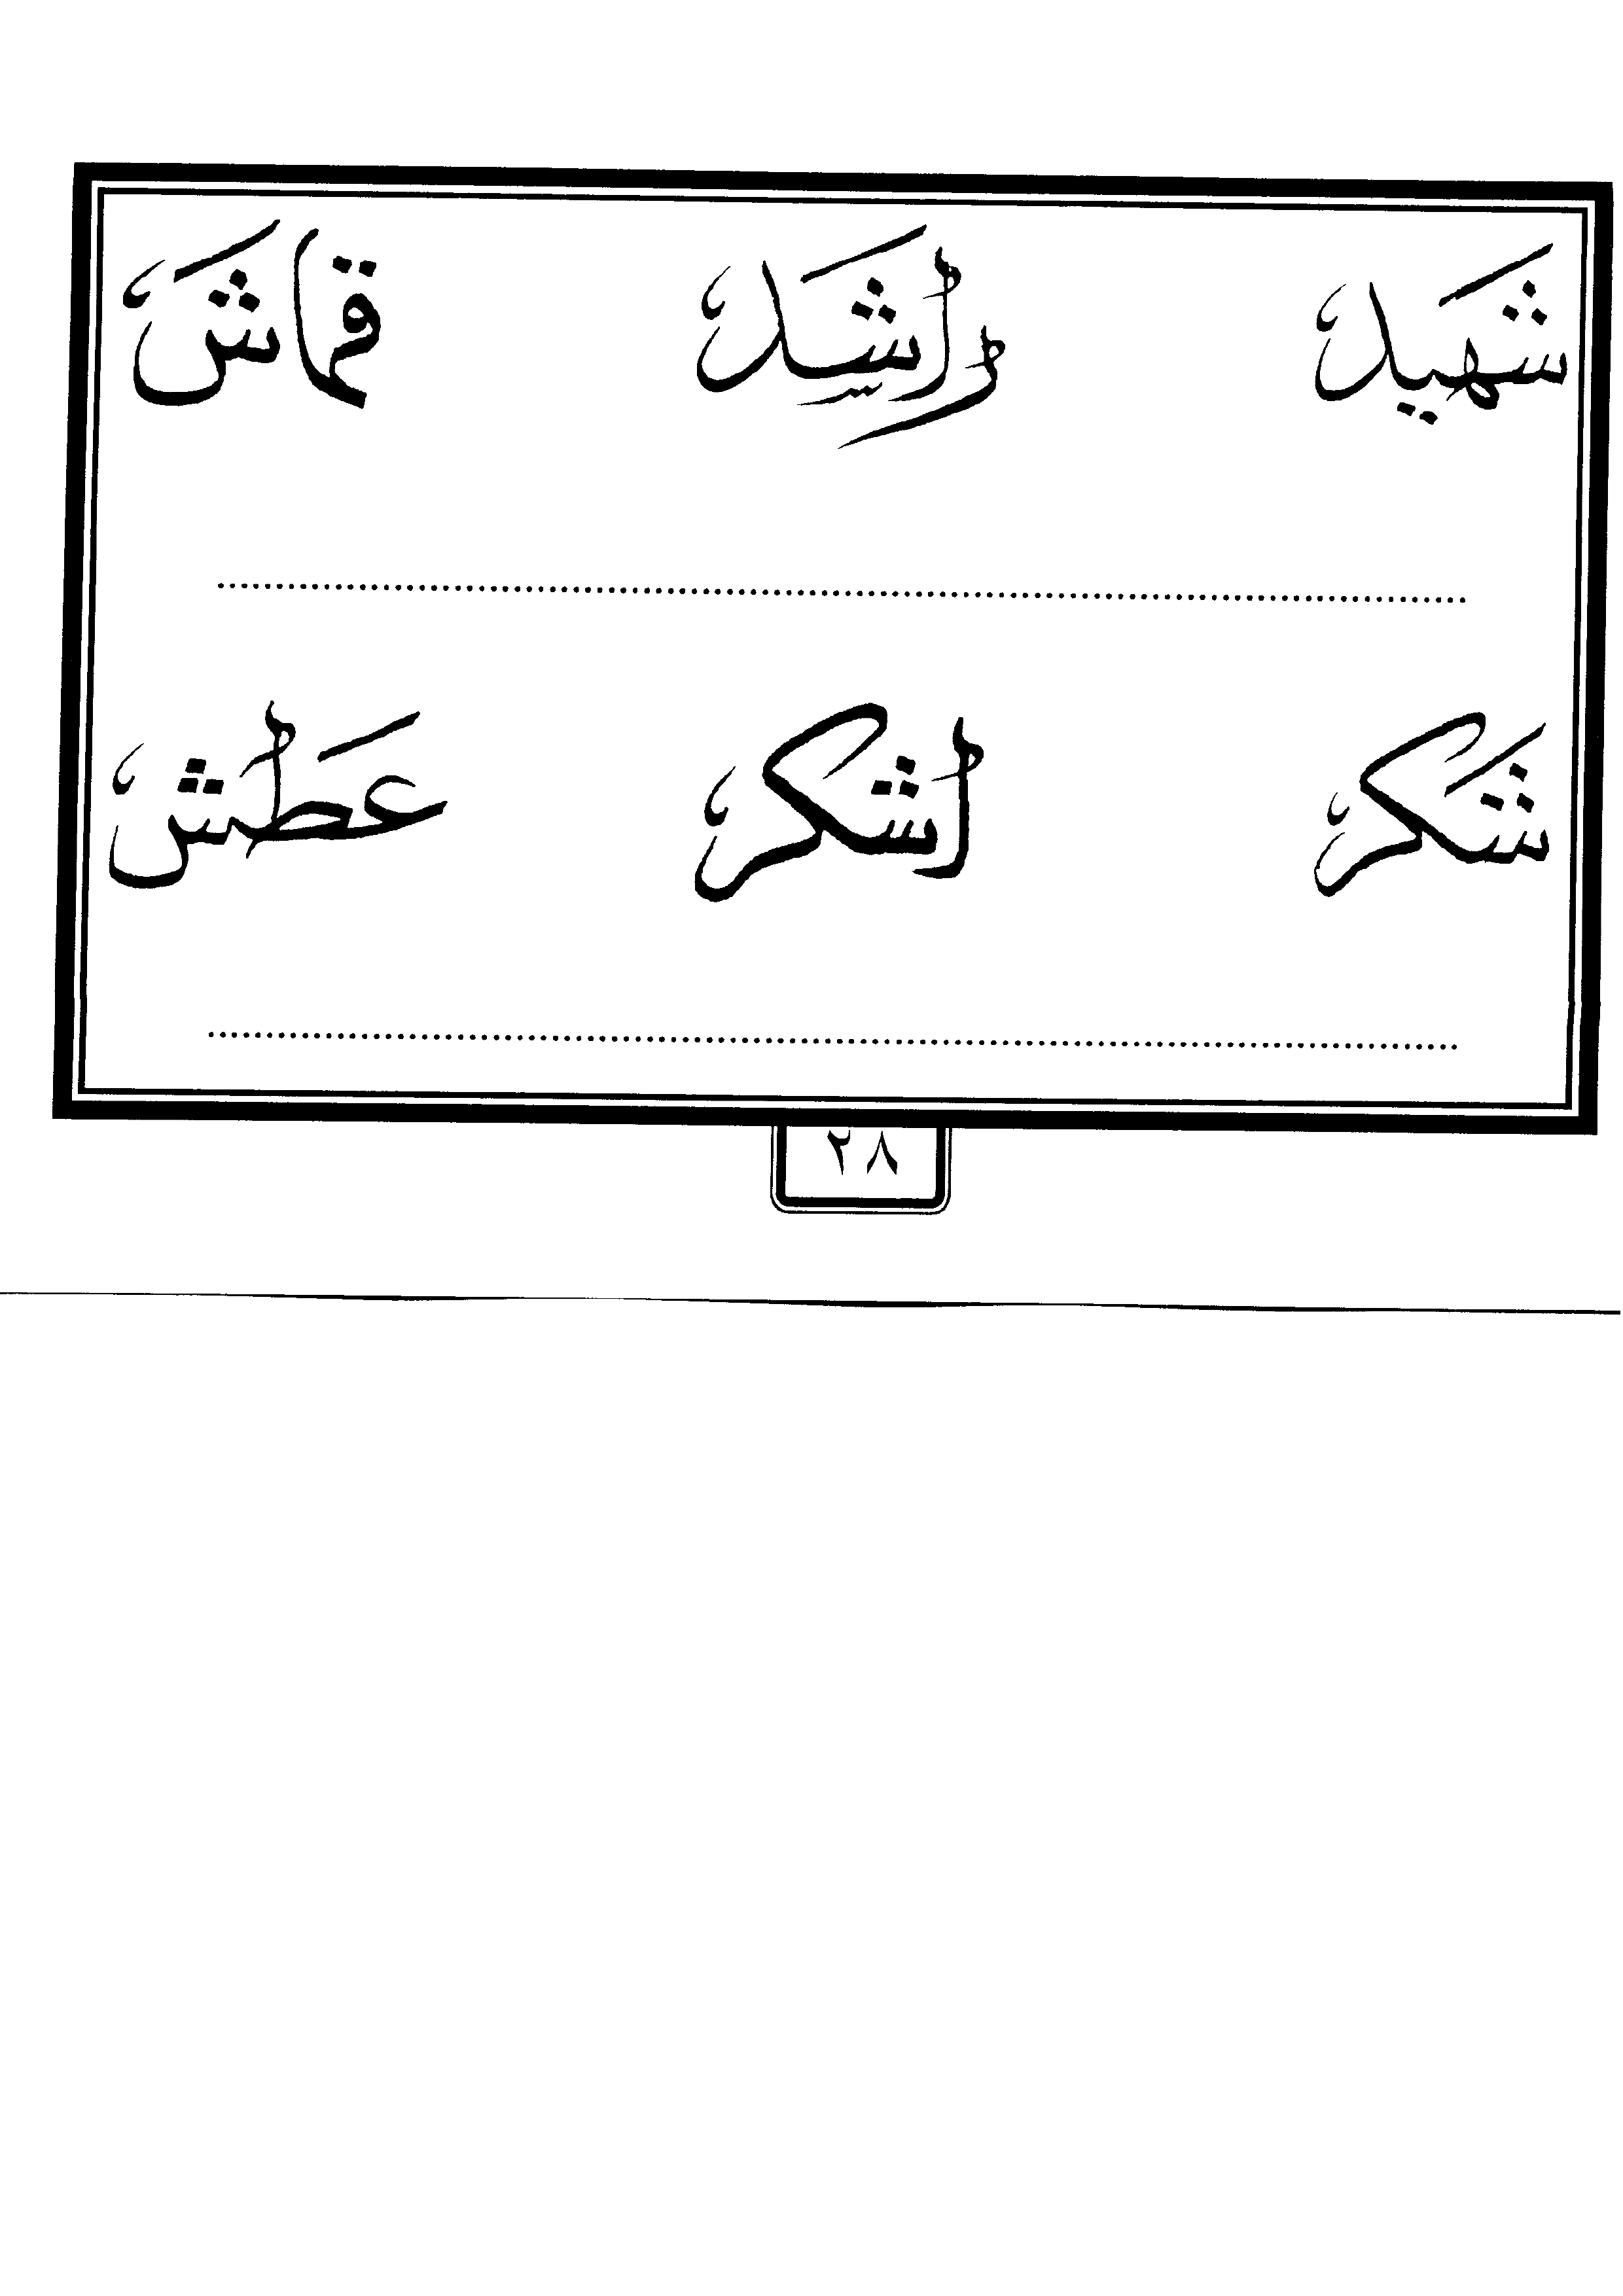 شهيد راشد قماش
شكر اشكر عطش
٢٨